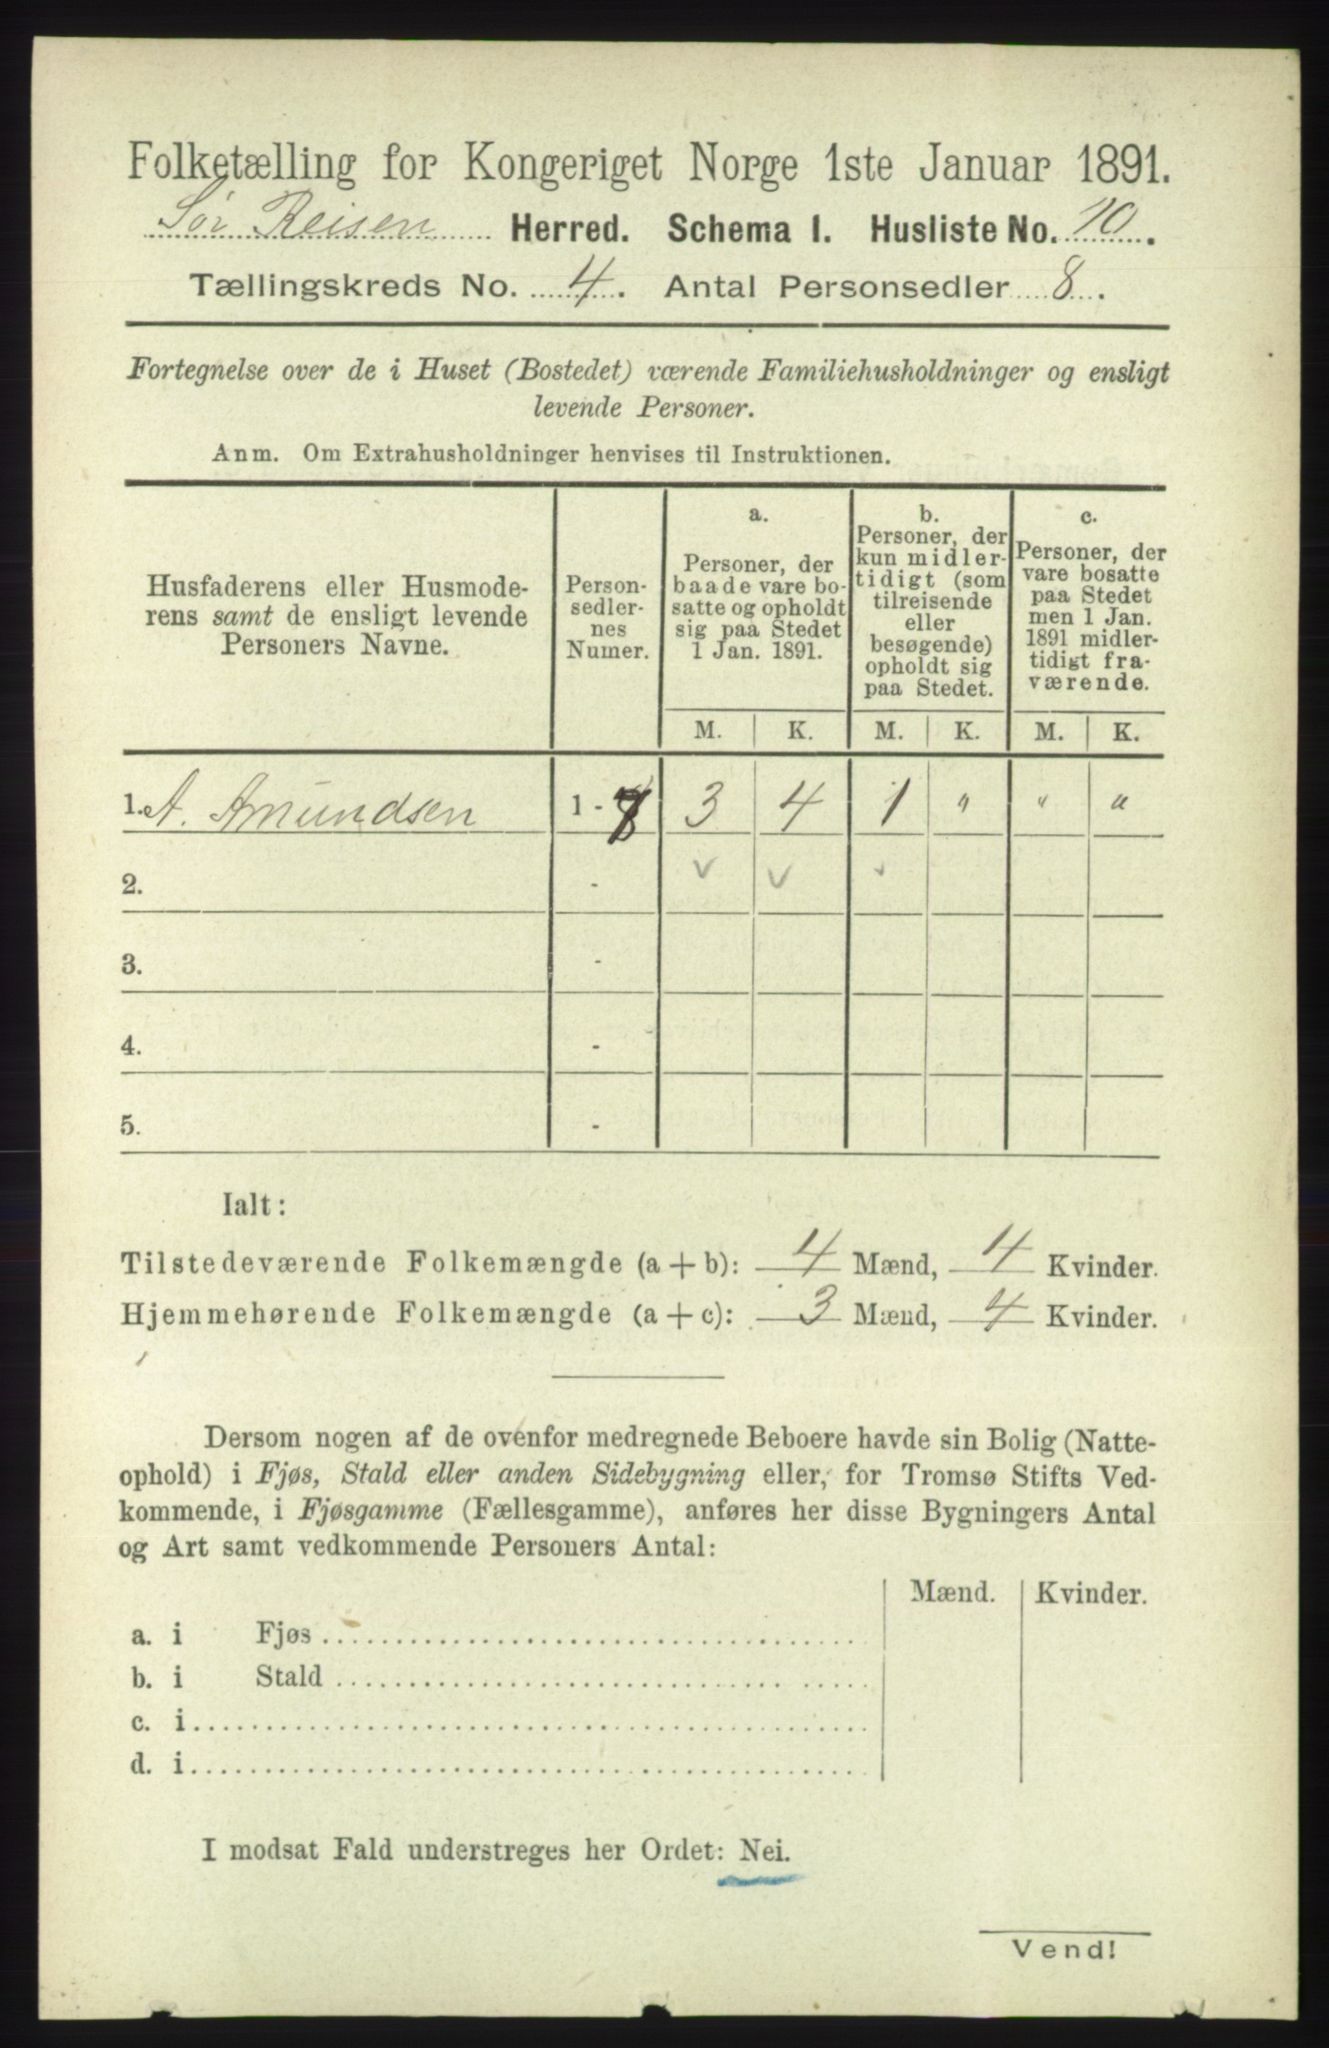 Folketælling for Kongeriget Norge 1ste Januar 1891.
Sør Reisen Herred. Schema I. Husliste No. 10.
Tællingskreds No. 4. Antal Personsedler 8.
Fortegnelse over de i Huset (Bostedet) værende Familiehusholdninger og ensligt
levende Personer.
Anm. Om Extrahusholdninger henvises til Instruktionen.
Husfaderens eller Husmode-
rens samt de ensligt levende
Personers Navne.
Person-
sedler-
nes
Numer.
a.
Personer, der
baade vare bo-
satte og opholdt
sig paa Stedet
1 Jan. 1891.
b.
Personer, der
kun midler-
tidigt (som
tilreisende
eller
besøgende)
opholdt sig
paa Stedet.
c.
Personer, der
vare bosatte
paa Stedet
men 1 Jan.
1891 midler-
tidigt fra-
værende.
M. K. M. K. M. K.
1. A. Amundsen 1 - 8 3 4 1 " " "
2. -
3. -
4. -
5. -
Ialt:
Tilstedeværende Folkemængde (a + b): 4 Mænd, 4 Kvinder.
Hjemmehørende Folkemængde (a + c): 3 Mænd, 4 Kvinder.
Dersom nogen af de ovenfor medregnede Beboere havde sin Bolig (Natte-
ophold) i Fjøs, Stald eller anden Sidebygning eller, for Tromsø Stifts Ved-
kommende, i Fjøsgamme (Fællesgamme), anføres her disse Bygningers Antal
og Art samt vedkommende Personers Antal:
Mænd. Kvinder.
a. i Fjøs
b. i Stald
c. i
d. i
I modsat Fald understreges her Ordet: Nei.
Vend!